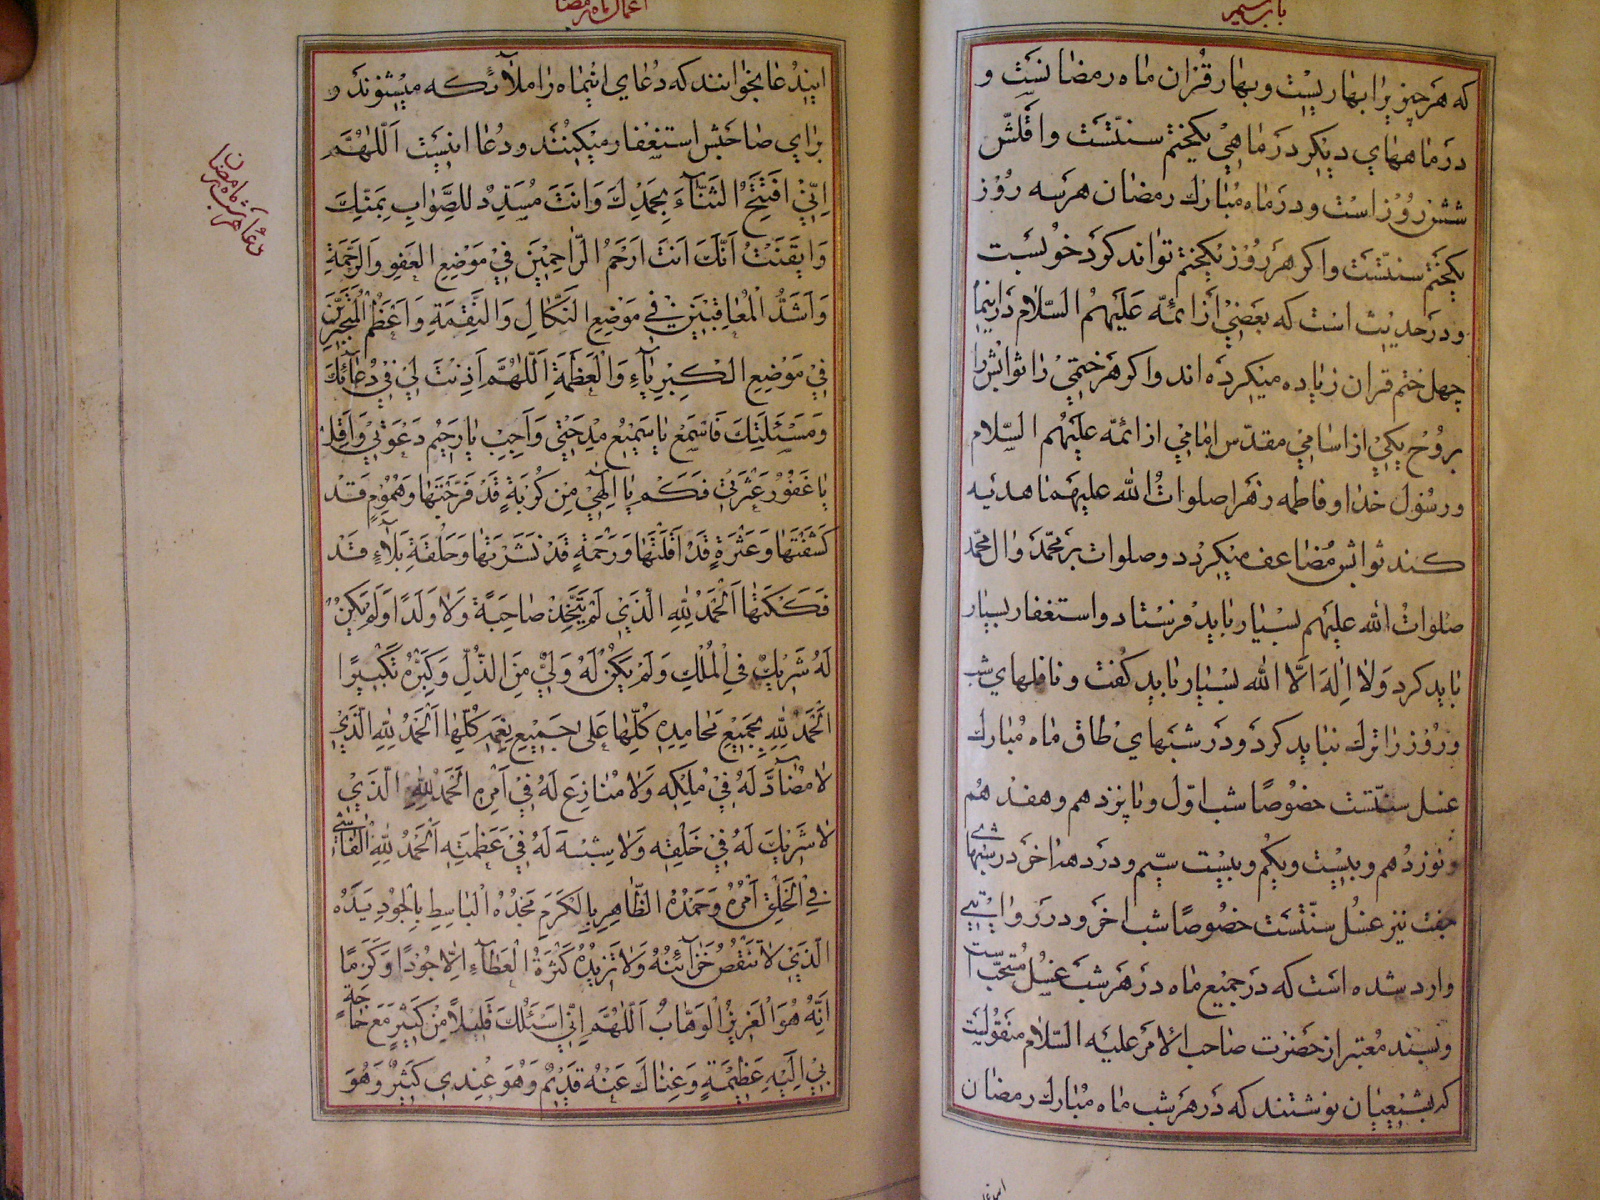 باب سیم
که هرچیز را بهاریست و بهار قران ماه رمضانست و
در ماههای دیکر در ماهی یکختم سنّتست و اقلّش
شش روز است و در ماه مبارك رمضان هر سه روز
یکختم سنّتست و اکر هر روز یکختم تواند کرد خوبست
و در حدیث است که بعضی از ائمّه علیهم السّلام در اینماه
چهل ختم قران زیاده میکرده اند و اکر هر ختمی را ثوابش را
بروح یکی از اسامی مقدّس امامی از ائمّه علیهم السّلام
و رسول خدا و فاطمه زهرا صلوات الله علیهما هدیه
کند ثوابش مضاعف میکردد و صلوات بر محمّد و ال محمّد
صلوات الله علیهم بسیار باید فرستاد و استغفار بسیار
باید کرد و لا اله الّا الله بسیار باید کفت و نافلهای شب
و روز را ترك نباید کرد و در شبهای طاق ماه مبارك
غسل سنّتست خصوصًا شب اوّل و پانزدهم و هفدهم
و نوزدهم و بیست و یکم و بیست سیّم و در دهه اخر در شبهای
جفت نیز غسل سنّتست خصوصًا شب اخر و در روایتی
وارد شده است که در جمیع ماه در هر شب غسل مستحبّ است
و بسند معتبر از حضرت صاحب الامر علیه السّلام منقولیست
که بشیعیان نوشتند که در هر شب ماه مبارك رمضان
اعمال ماه رمضان
ایندعا بخوانند که دعای اینماه را ملائکه میشنوند و
برای صاحبش استغفار میکنند و دعا اینست اَللّهُمَّ
اِنّی اَفْتَتِحُ الثَّنآءَ بِحَمْدِكَ وَ اَنْتَ مُسَدِّدٌ لِلصَّوابِ بِمَنِّكَ
وَ اَیْقَنْتُ اَنَّكَ اَنْتَ اَرْحَمُ الرّاحِمینَ فی مَوْضِعِ الْعَفْوِ وَ الرَّحْمَةِ
وَ اَشَدُّ الْمُعاقِبینَ فی مَوْضِعِ النَّکالِ وَ النَّقِمَةِ وَ اَعْظَمُ الْمُتَجَبِّرینَ
فی مَوْضِعِ الْکِبْرِیآءِ وَ الْعَظَمَةِ اَللّهُمَّ اَذِنْتَ لی فی دُعآئِكَ
وَ مَسْئَلَتِكَ فَاسْمَعْ یا سَمیعُ مِدْحَتی وَ اَجِبْ یا رَحیمُ دَعْوَتی وَ اَقِلْ
یا غَفُورُ عَثْرَتی فَکَمْ یا اِلهی مِنْ کُرْبَةٍ قَدْ فَرَّجْتَها وَ هُمُومٍ قَدْ
کَشَفْتَها وَ عَثْرَةٍ قَدْ اَقَلْتَها وَ رَحْمَةٍ قَدْ نَشَرْتَها وَ حَلْقَةِ بَلآءٍ قَدْ
فَکَکْتَها اَلْحَمْدُ لِلّهِ الَّذی لَمْ یَتَّخِذْ صاحِبَةً وَ لا وَلَدًا وَ لَمْ یَکُنْ
لَهُ شَریكٌ فِی الْمُلْكِ وَ لَمْ یَکُنْ لَهُ وَلِیٌّ مِنَ الذُّلِّ وَ کَبِّرْهُ تَکْبیرًا
اَلْحَمْدُ لِلّهِ بِجَمیعِ مَحامِدِهِ کُلِّها عَلی جَمیعِ نِعَمِهِ کُلِّها اَلْحَمْدُ لِلّهِ الَّذی
لا مُضآدَّ لَهُ فی مُلْکِهِ وَ لا مُنازِعَ لَهُ فی اَمْرِهِ اَلْحَمْدُ لِلّهِ الَّذی
لا شَریكَ لَهُ فی خَلْقِهِ وَ لا شِبْهَ لَهُ فی عَظَمَتِهِ اَلْحَمْدُ لِلّهِ الْفاشی
فِی الْخَلْقِ اَمْرُهُ وَ حَمْدُهُ الظّاهِرِ بِالْکَرَمِ مَجْدُهُ الْباسِطِ بِالْجُودِ یَدَهُ
الَّذی لا تَنْقُصُ خَزآئِنُهُ وَ لا تَزیدُهُ کَثْرَةُ الْعَطآءِ اِلّا جُودًا وَ کَرَمًا
اِنَّهُ هُوَ الْعَزیزُ الْوَهّابُ اَللّهُمَّ اِنّی اَسْئَلُكَ قَلیلًا مِنْ کَثیرٍ مَعَ حاجَةٍ
بی اِلَیْهِ عَظیمَةٍ وَ غِناكَ عَنْهُ قَدیمٌ وَ هُوَ عِنْدی کَثیرٌ وَ هُوَ
دعآء
هر شب ماه
رمضان